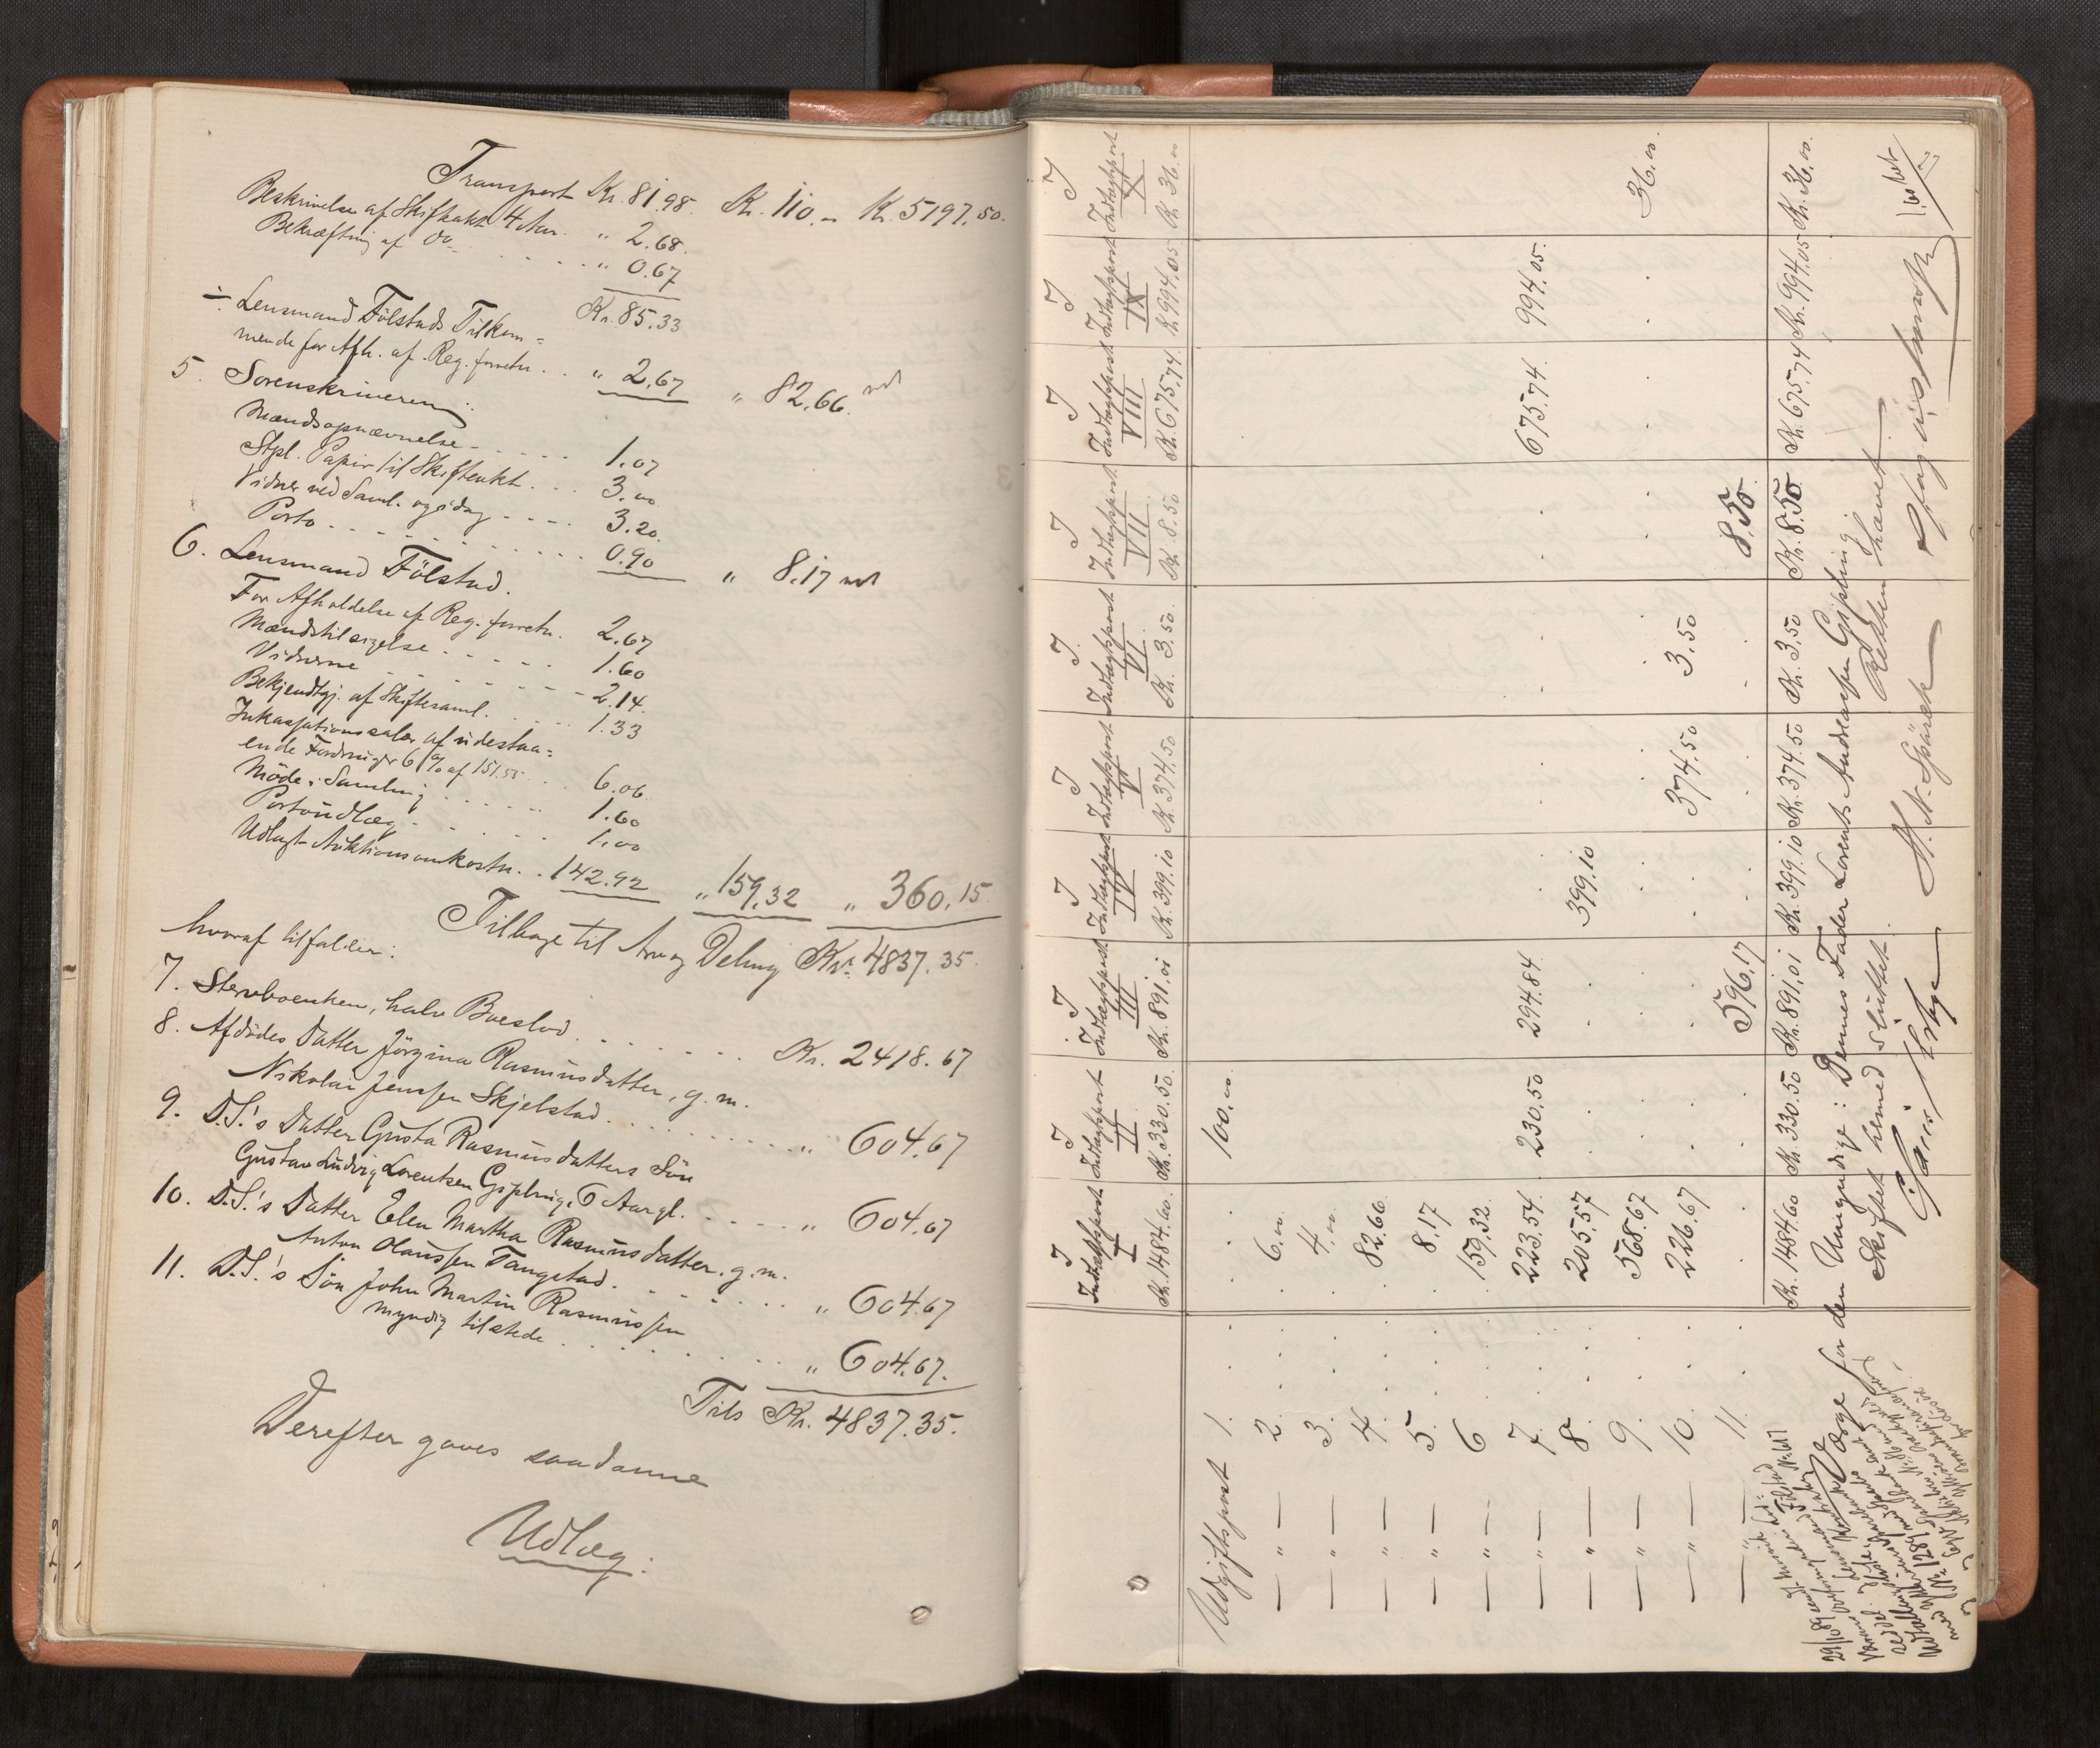 Transport Kr. 81.98. Kr. 110.- Kr. 5197.50.
Beskrivelse af Skifteakt 4 Aar. " 2.68.
Bekræftning af Do. . . . . . " 0.67
Kr. 85.33
÷ Lensmand Fölstads Tilkom=
mende for Afh. af Reg. forretn. . . " 2.67 " 82.66.
5. Sorenskriveren:
Mændsopnævnelse . . . . . 1.07
Stpl. Papir til Skifteakt . . . 3.00
Vidner ved Saml. og idag . . . . 3.20.
Porto . . . . . . . . . . 0.90 " 8.17
6. Lensmand Fölstad.
For Afholdelse af Reg. forretn. 2.67
Mændstilsigelse . . . . . 1.60
Vidnerne . . . . . . . . 2.14.
Bekjendtgj. af Skiftesaml. . . . . 1.33
Inkassationssalær af udestaa=
ende Fordringer 6 % af 151.55 . . 6.06.
Möde i Samling . . . . . . 1.60
Portoudlæg . . . . . . . 1.00
Udlagt Auktionsomkostn. . . 142.92 " 159.32 " 360.15
Tilbage til Arv og Deling Kr. 4837.35.
hvoraf tilfalder:
7. Stervboenken, halv Boeslod . . . . . . . Kr. 2418.67
8. Afdödes Datter Jörgina Rasmusdatter, g. m.
Nikolai Jenssen Skjelstad . . . . . . . . . . " 604.67
9. D.S.'s Datter Gusta Rasmusdatters Sön
Gustav Ludvig Lorentsen Gjpling, 6 Aar gl. . . . . " 604.67
10. D.S.'s Datter Elen Martha Rasmusdatter. g. m.
Anton Olaussen Tangstad . . . . . . . . " 604.67
11. D.S.'s Sön John Martin Rasmussen
myndig tilstede . . . . . . . . . " 604.67.
Tils Kr. 4837.35.
Derefter gaves saadanne
Udlæg:
I I I I I I I I I I
Indtægtspost Indtægtspost Indtægtspost Indtægtspost Indtægtspost Indtægtspost Indtægtspost Indtægtspost Indtægtspost Indtægtspost
I II III IV V VI VII VIII IX X
Kr. 1484.60. Kr. 330.50. Kr. 891.01 Kr. 399.10 Kr. 374.50 Kr. 3.50 Kr. 8.50 Kr. 675.74. Kr. 994.05 Kr. 36.00
Udgiftspost 1. . . . 100.00
— " — 2. . . . 6.00
— " — 3. . . . 4.00
— " — 4. . . . 82.66
— " — 5. . . . 8.17
— " — 6 . . . 159.32
— " — 7. . . . 223.54 230.50 294.84 675.74. 994.05.
— " — 8. . . . 205.57 399.10
— " — 9. . . . 568.67 36.00
— " — 10. . . . 226.67 374.50 3.50
— " — 11. . . . 596.17 8.50
Kr. 1484.60 Kr. 330.50 Kr. 891.01 Kr. 399.10 Kr. 374.50 Kr. 3.50 Kr. 8.50 Kr. 675.74 Kr. 994.05 Kr. 36.00
Værge for den Umyndige: Dennes Fader Lorents Andreassen Gjpling
Skiftet hermed sluttet. Retten hævet